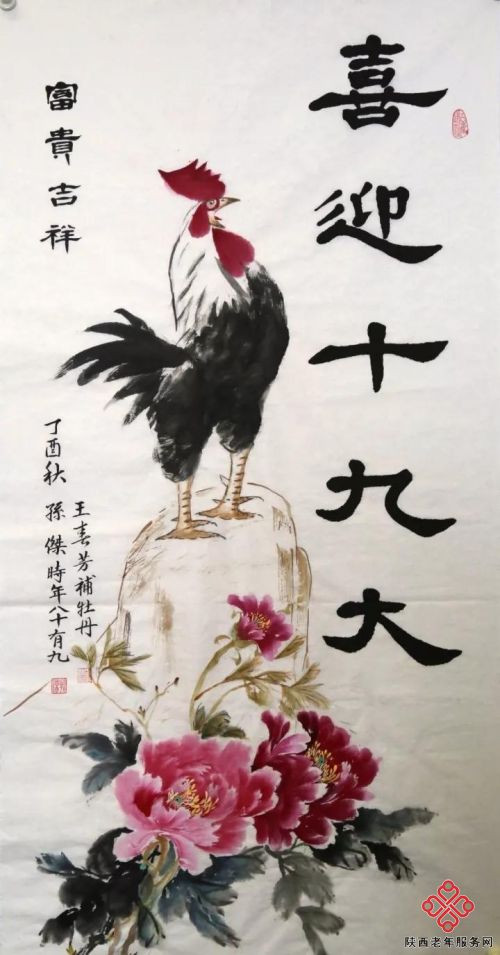 喜迎十九大
富貴吉祥
丁酉秋 孫傑時年八十有九
王春芳補牡丹
陕西老年服务网